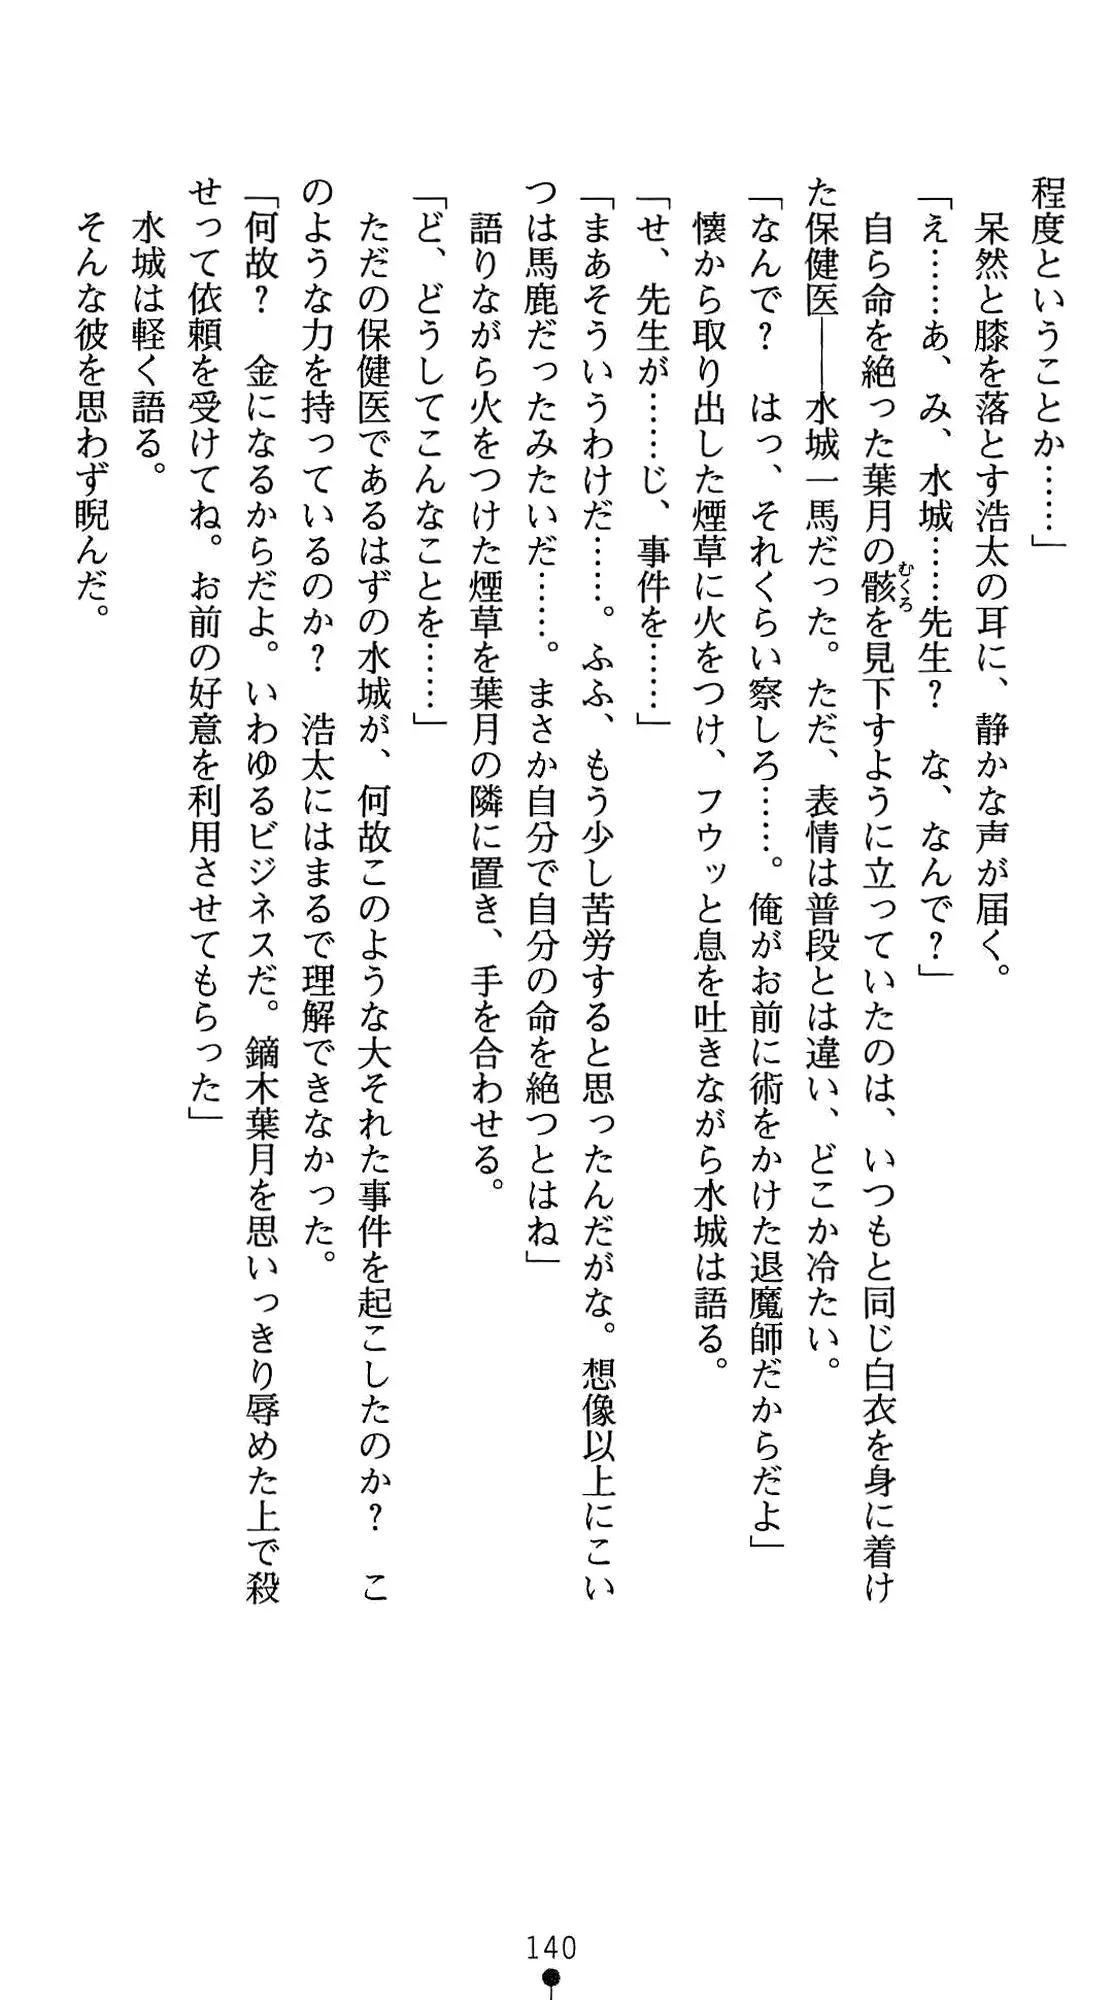 程度ということか……」
　呆然と膝を落とす浩太の耳に、静かな声が届く。
「え……あ、み、水城……先生？　な、なんで？」
　自ら命を絶った葉月の骸むくろを見下すように立っていたのは、いつもと同じ白衣を身に着け
た保健医――水城一馬だった。ただ、表情は普段とは違い、どこか冷たい。
「なんで？　はっ、それくらい察しろ……。俺がお前に術をかけた退魔師だからだよ」
　懐から取り出した煙草に火をつけ、フウッと息を吐きながら水城は語る。
「せ、先生が……じ、事件を……」
「まあそういうわけだ……。ふふ、もう少し苦労すると思ったんだがな。想像以上にこい
つは馬鹿だったみたいだ……。まさか自分で自分の命を絶つとはね」
　語りながら火をつけた煙草を葉月の隣に置き、手を合わせる。
「ど、どうしてこんなことを……」
　ただの保健医であるはずの水城が、何故このような大それた事件を起こしたのか？　こ
のような力を持っているのか？　浩太にはまるで理解できなかった。
「何故？　金になるからだよ。いわゆるビジネスだ。鏑木葉月を思いっきり辱めた上で殺
せって依頼を受けてね。お前の好意を利用させてもらった」
　水城は軽く語る。
　そんな彼を思わず睨んだ。
140